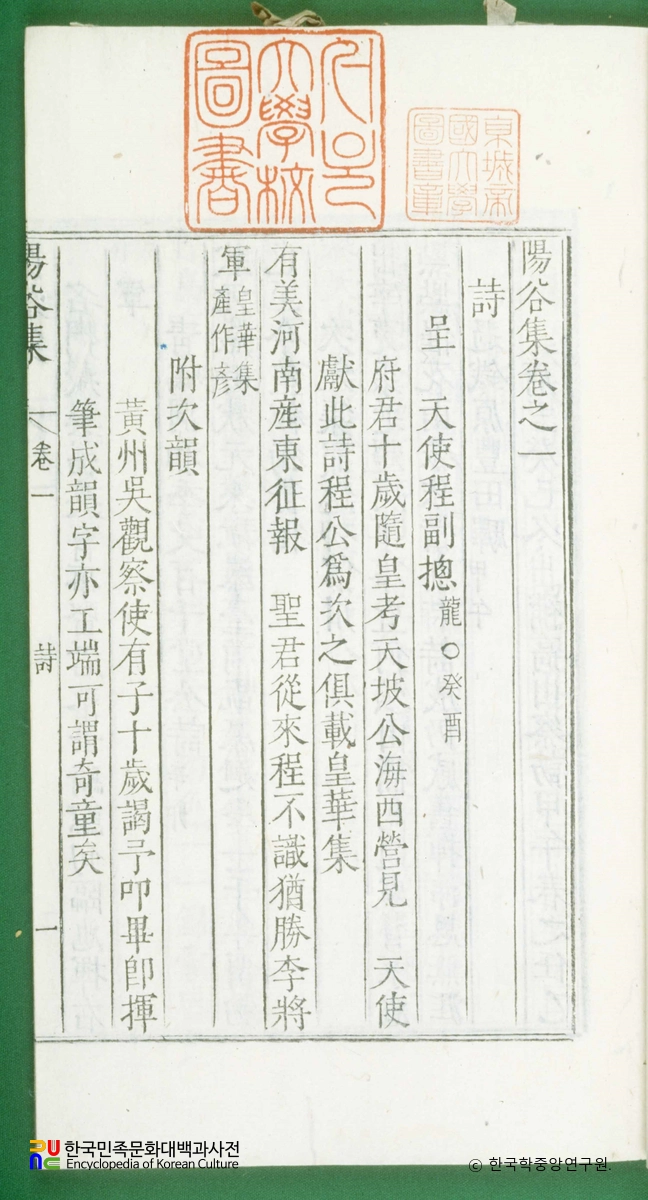 陽谷集卷之一
詩
呈 天使程副摠龍○癸酉
府君十歲隨皇考天坡公海西營見 天使
獻此詩程公爲次之俱載皇華集
有美河南産東征報 聖君從來程不識猶勝李將
軍皇華集産作彥
附次韻
黃州吳觀察使有子十歲謁予叩畢卽揮
筆成韻字亦工端可謂奇童矣
陽谷集 卷一 詩 一
京城帝國大學圖書章
서울大學校圖書
한국민족문화대백과사전
Encyclopedia of Korean Culture
© 한국학중앙연구원.